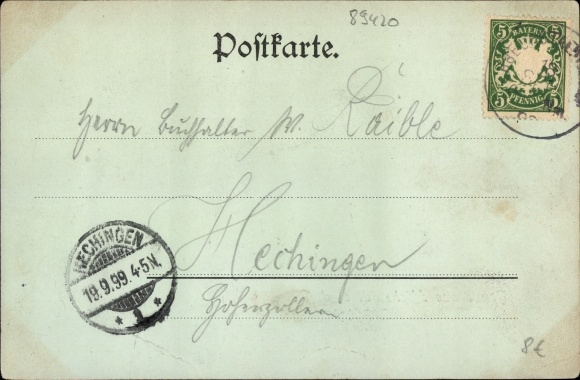 89420
Postkarte.
5 BAYERN 5
5 PFENNIG 5
Herrn Buchhalter W. Raible
Hechingen
HECHINGEN
19.9.99.4-5N.
Hohenzollern
8€